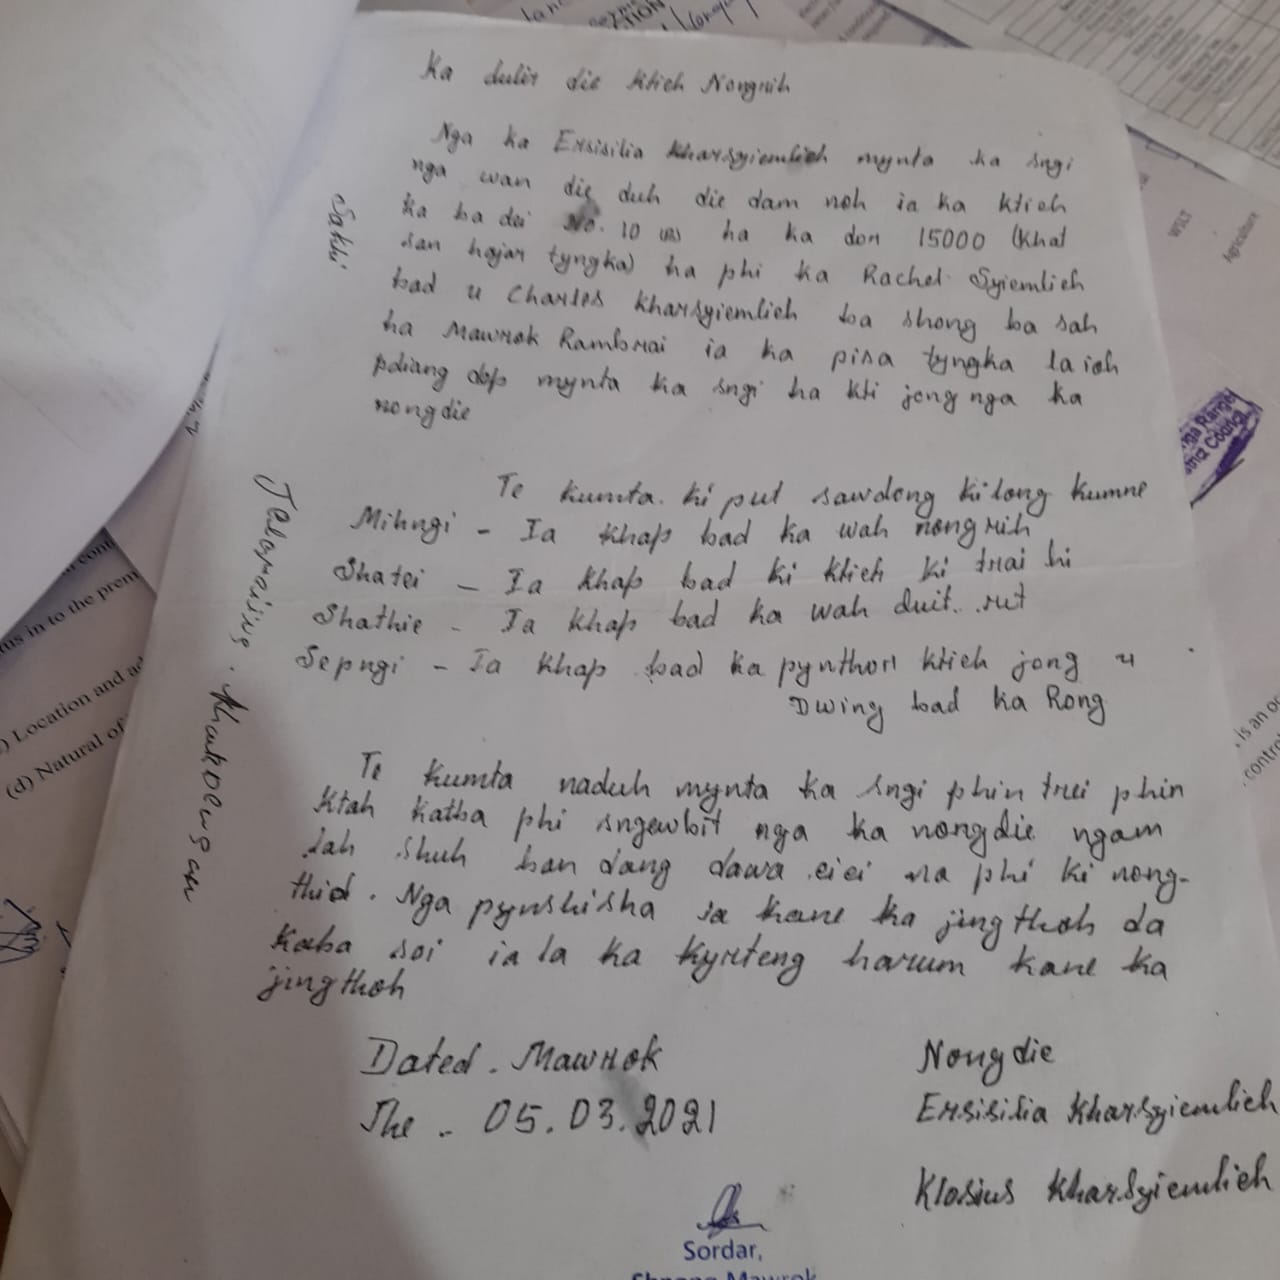 Ka dulir die ktieh Nongrih
Nga ka Ersisilia Kharsyiemlieh mynta ka sngi
nga wan die duh die dam noh ia ka ktieh
ka ba dei No. 10 ha ka dor 15000 (Khat
san hajar tyngka) ha phi ka Rachel Syiemlieh
bad u Charles Kharsyiemlieh ba shong ba sah
ha Mawrok Rambrai ia ka pisa tyngka la ioh
pdiang dep mynta ka sngi ha kti jong nga ka
nongdie
Te kumta. ki pud sawdong ki long kumne
Mihngi - Ia khap bad ka wah nongrih
Shatei - Ia khap bad ki ktieh ki trai hi
Shathie - Ia khap bad ka wah duit rut
Sepngi - Ia khap bad ka pynthor ktieh jong u
Dwing bad ka Rong
Te kumta naduh mynta ka sngi phin trei phin
ktah katba phi sngewbit nga ka nongdie ngam
lah shuh ban dang dawa eiei na phi ki nong-
thied. Nga pynshisha ia kane ka jingthoh da
kaba soi ia la ka kyrteng harum kane ka
jingthoh
Dated. Mawrok
The. 05.03.2021
Nongdie
Ersisilia Kharsyiemlieh
Klosius Kharsyiemlieh
Sordar,
Shnong Mawrok
Sakhi
District Council
Location and
(d) Natural of
WSLT
Agriculture
is an